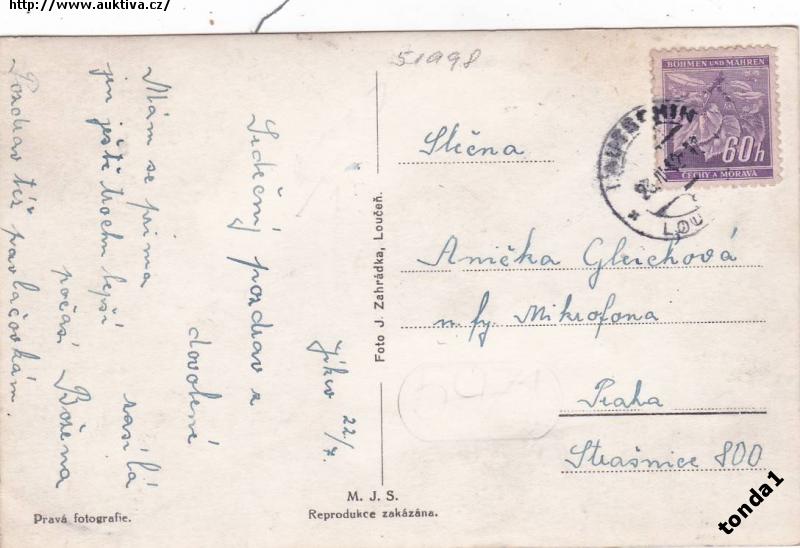 http://www.auktiva.cz/
51998
Jíkev 22/7.
Srdečný pozdrav z
dovolené
zasílá
Božena
Mám se prima
jen ještě trochu lepší
počasí
Pozdrav též pavlačovkám.
Pravá fotografie.
M. J. S.
Reprodukce zakázána.
Foto J. Zahrádka, Loučeň.
BÖHMEN UND MÄHREN
60h
ČECHY A MORAVA
LOU
Slečna
Anička Gleichová
u fy Mikrofona
Praha
Strašnice 800
tonda1